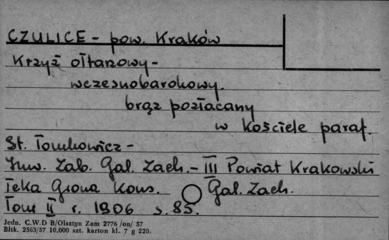 CZULICE - pow. Kraków
Krzyż ołtarzowy -
wczesnobarokowy.
brąz pozłacany
w kościele paraf.
St. Tomkowicz -
Inw. Zab. Gal. Zach. - III Powiat Krakowski
Teka Grona Kons. Gal. Zach.
Tom II r. 1906 s. 85.
Jedn. C.W.D B/Olsztyn Zam 2776 /on/ 57
Bltk. 2563/57 10.000 szt. karton kl. 7 g 220.